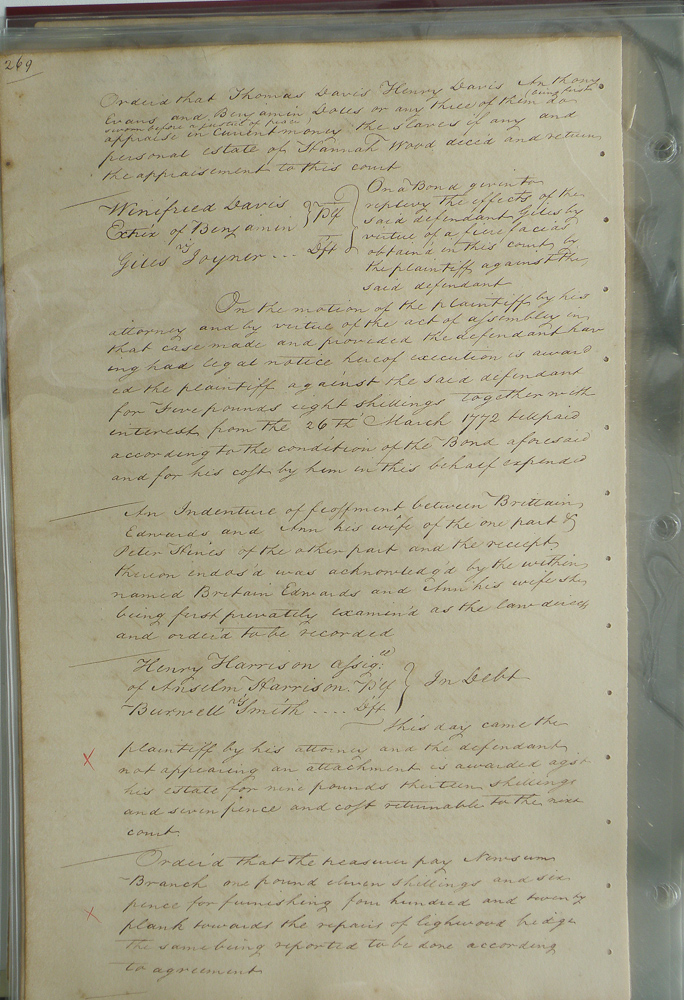 269
Orderd that Thomas Davis Henry Davis Anthony
Evans and Benjamin Doles or any three of them (being first
sworn before a justed of peace) do
appraise in current money the slaves if any and
personal estate of Hannah Wood decid and return
the appraisement to this court
Winifried Davis
Extrix of Benjamin } Plf
vs
Giles Joyner ... Dft
On a Bond given to
replevy the effects of the
said defendant Giles by
virtue of a fiere facias
obtain'd in this court by
the plaintiff against the
said defendant
On the motion of the plaintiff by his
attorney and by virtue of the act of assembly in
that case made and provided the defendant hav
ing had legal notice hereof execution is award
ed the plaintiff against the said defendant
for Five pounds eight shillings together with
interest from the 26th March 1772 till paid
according to the condition of the Bond aforesaid
and for his cost by him in this behalf expended
An Indenture of feoffment between Brittain
Edwards and Ann his wife of the one part &
Peter Hines of the other part and the receipt
thereon endos'd was acknowledg'd by the within
named Britain Edwards and Ann his wife she
being first privately examin'd as the law directs
and order'd to be recorded
Henry Harrison assig:ee
of Anselm Harrison. Plf } In Debt
vs
Burwell Smith .... Dft
This day came the
plaintiff by his attorney and the defendant
not appearing an attachment is awarded agst
his estate for nine pounds thirteen shillings
and seven pence and cost returnable to the next
court
Order'd that the treasurer pay Newsum
Branch one pound eleven shillings and six
pence for furnishing four hundred and twenty
plank towards the repairs of lighwood bridge
the same being reported to be done according
to agreement